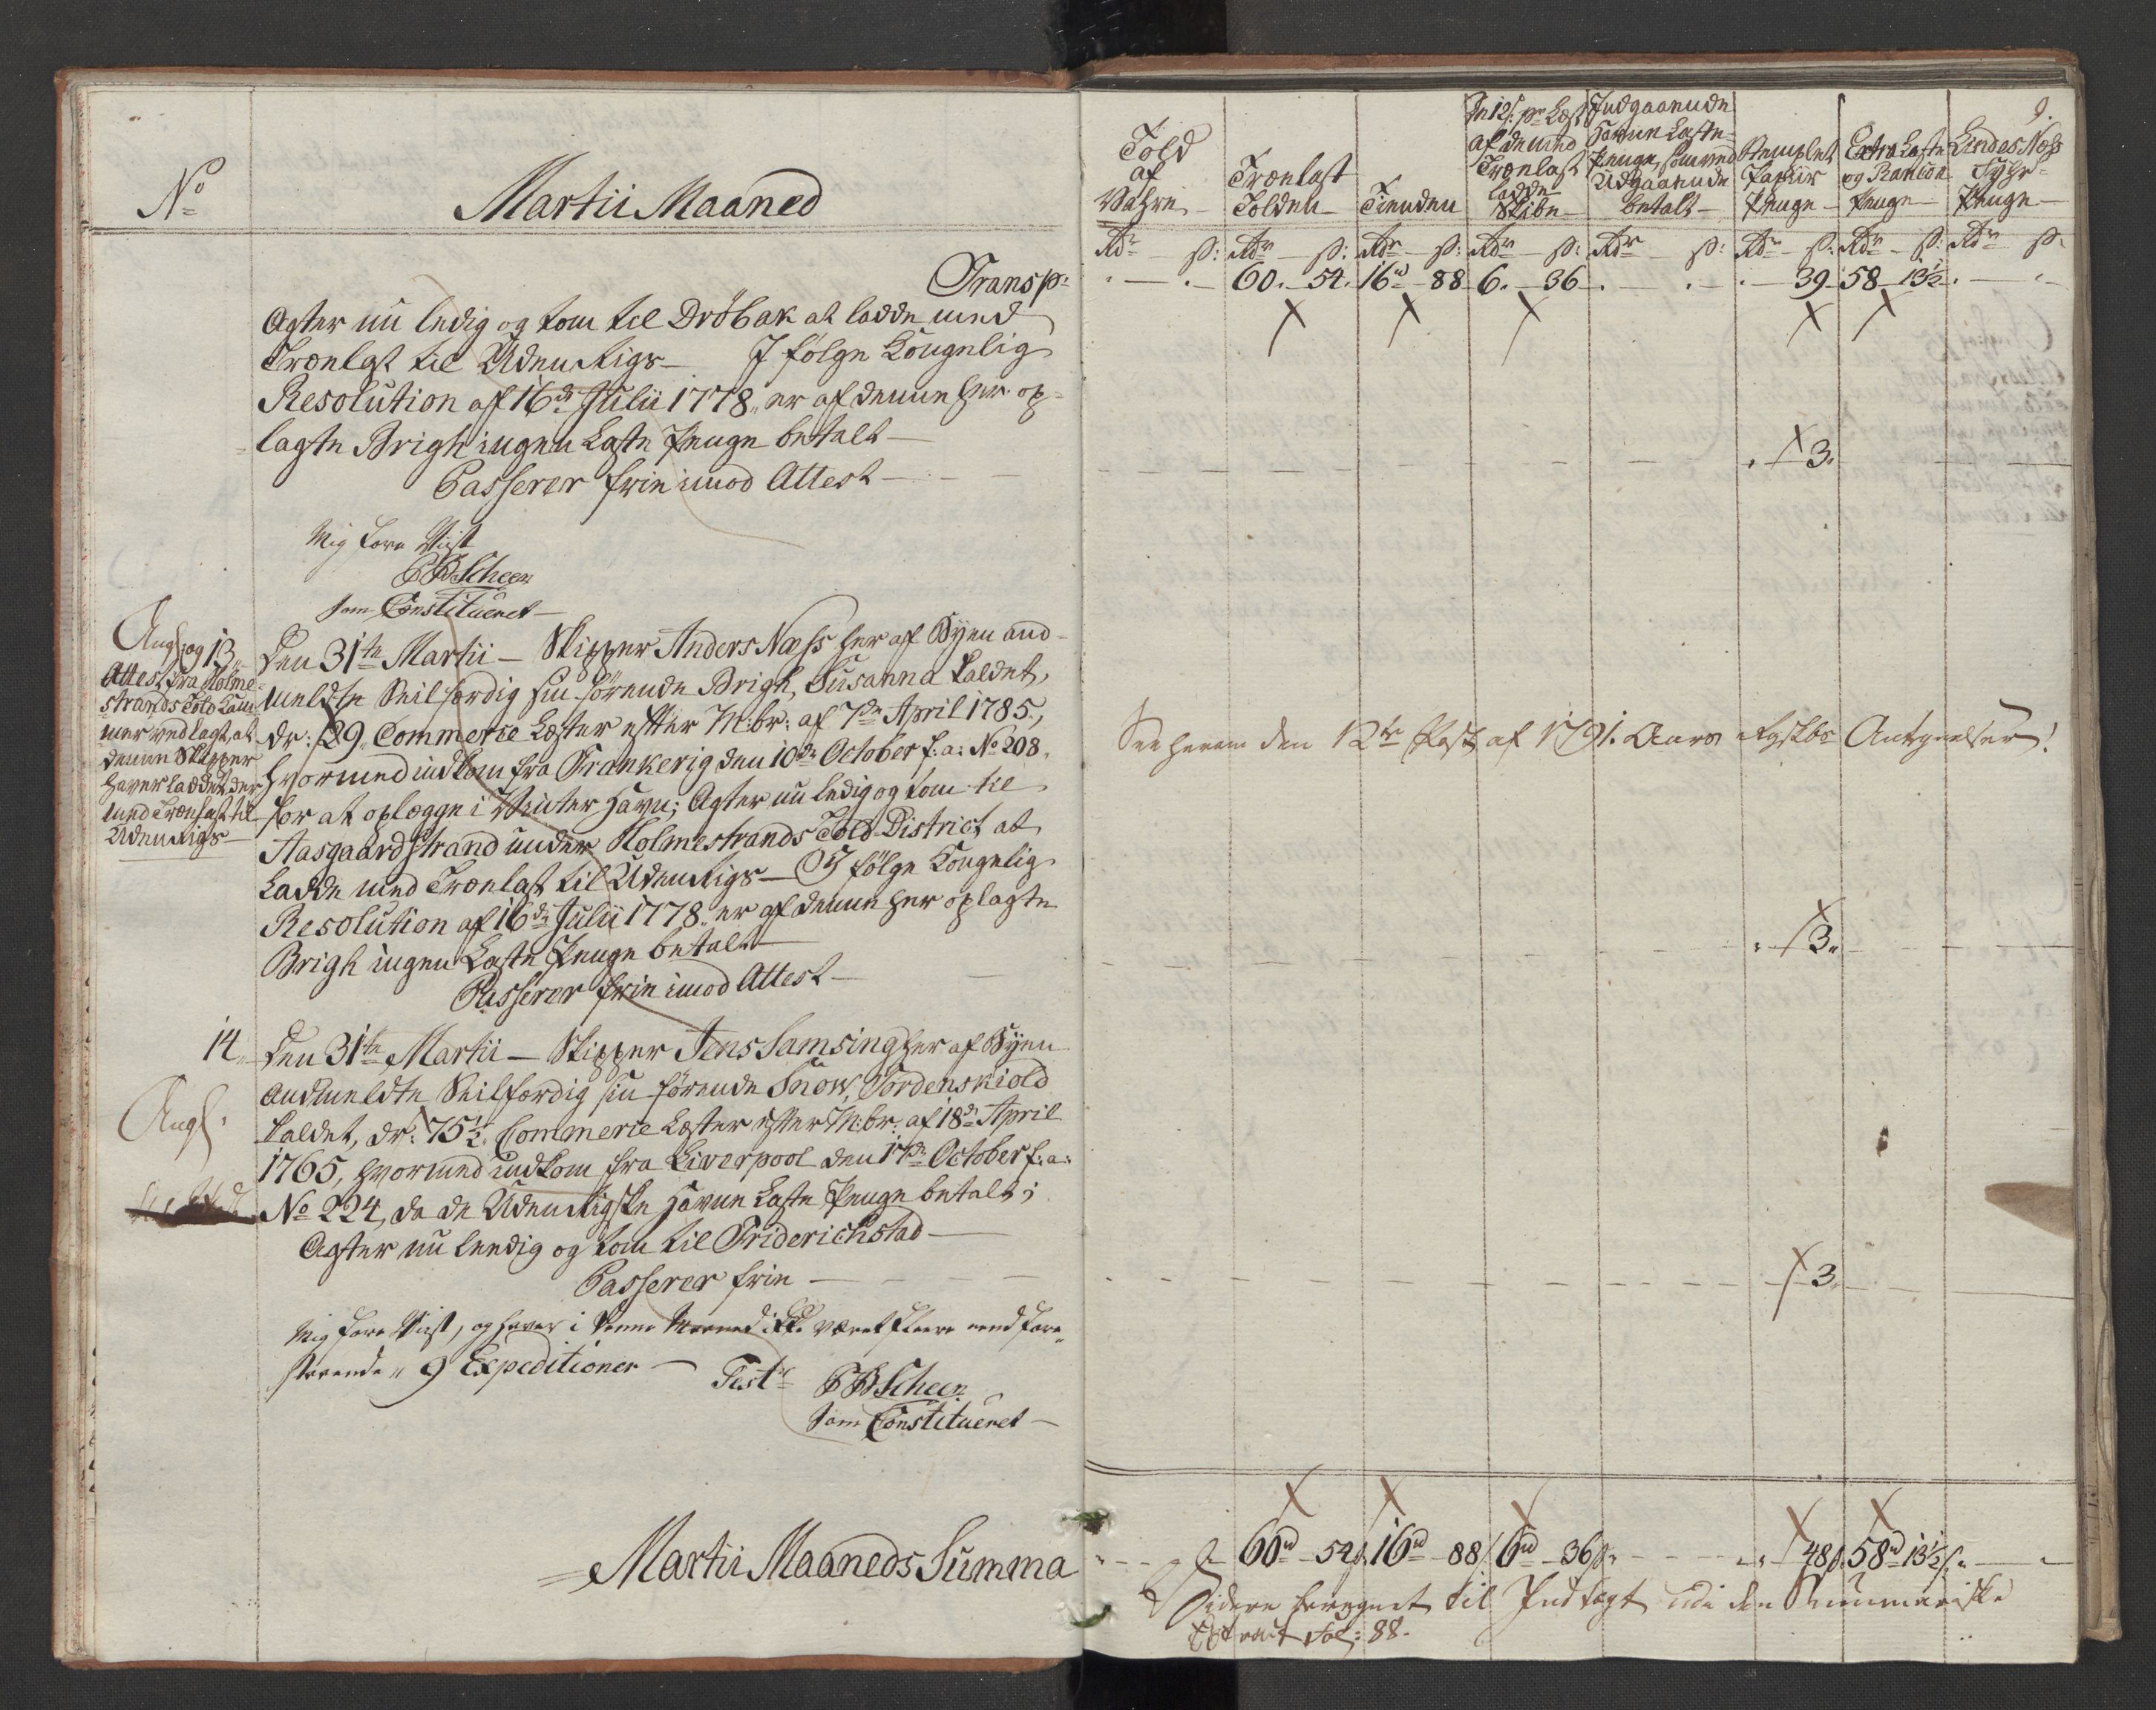 No
Martii Maaned
Transp:
Agter nu ledig og tom til Dröbak at ladde med
Trælast til Udenrigs — I følge Kongelig
Resolution af 16de Julii 1778, er af denne her op-
lagte Brigh ingen Laste Penge betalt —
Passerer frie imod Attest —
Mig Fore Viist
P B Scheen
som Constitueret —
Angf. og 13
Attest fra Holme-
strands Told Kam-
mer vedlagt, at
denne Skipper
haver laddet der
med Trælast til
Udenrigs —
Den 31te Martii — Skipper Anders Næss her af Byen and-
meldte Seilfærdig sin förende Brigh, Susanna kaldet,
dr: 29 Commerce Læster efter M:br: af 7de April 1785,
hvormed indkom fra Frankerig den 10de October f: a: No 208,
for at oplægge i Vinter Havn; Agter nu ledig og tom til
Aasgaardstrand under Holmestrands Told District at
Ladde med Trælast til Udenrigs — I følge Kongelig
Resolution af 16de Julii 1778, er af denne her oplagte
Brigh ingen Laste Penge betalt —
Passerer frie imod Attest —
14
Den 31te Martii — Skipper Jens Samsing her af Byen
Andmeldte Seilfærdig sin förende Snow, Tordenskiold
kaldet, dr: 75½ Commerce Læster efter M:br: af 18de April
Angf.
1765, hvormed indkom fra Liverpool den 17de October f: a:
No 224, da de Udenrigske Havne Laste Penge betalt;
Agter nu leedig og tom til Friderichstad —
Passerer frie —
Mig Fore Viist, og haver i denne Maaned ikke været fleere end fore-
staaende 9 Expeditioner — Test: P B Scheen
som Constitueret —
Martii Maaneds Summa
9.
Told af Vahre
Trælast Tolden
Tienden
De 12 s: pr Læst af de med Trælast ladde Skibe
Indgaaende Havne Laste Penge, som ved Udgaaende betalt
Stemplet Papiir Penge
Extra Laste og Rancon Penge
Lindes Næss Fyhr Penge
Rdr s: Rdr s: Rdr s: Rdr s: Rdr s: Rdr s: Rdr s: Rdr s:
60 54 16 88 6 36 39 58 13½
3
See herom den 12te Post af 1791. Aars Antegnelser!
3
3
60rd 54s 16rd 88s 6rd 36s 48s 58rd 13½s
Videre beregnet til Indtægt udi den Summariske
Extract Fol: 88.